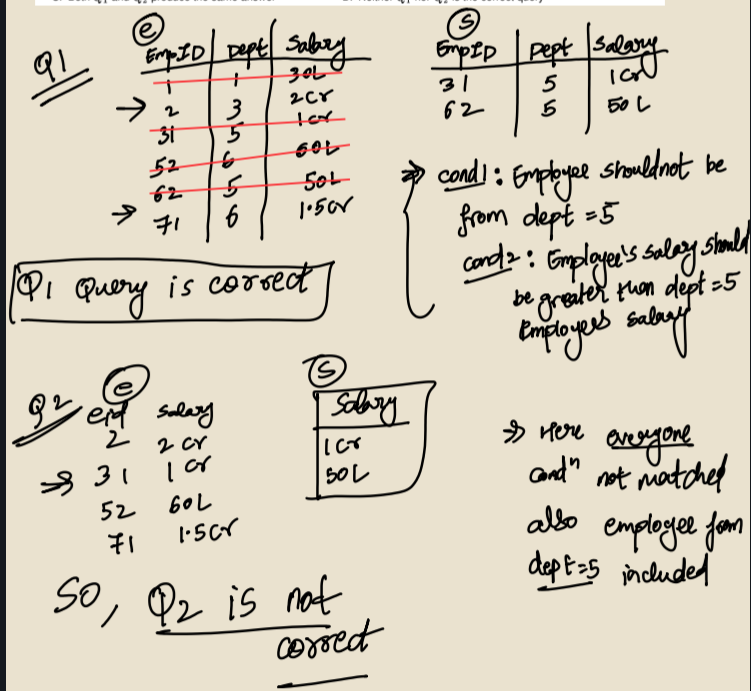 Q1
e
EmpID Dept Salary
1 1 30L
2 3 2Cr
31 5 1Cr
52 6 60L
62 5 50L
71 6 1.5Cr
S
EmpID Dept Salary
31 5 1Cr
62 5 50L
⇒ cond1: Employee should not be
from dept = 5
cond2: Employee's salary should
be greater than dept = 5
Employees salary
Q1 Query is correct
Q2
e
eid salary
2 2 cr
⇒ 31 1 cr
52 60L
71 1.5Cr
S
Salary
1Cr
50L
⇒ Here everyone
condn not matched
also employee from
dept=5 included
So, Q2 is not
correct